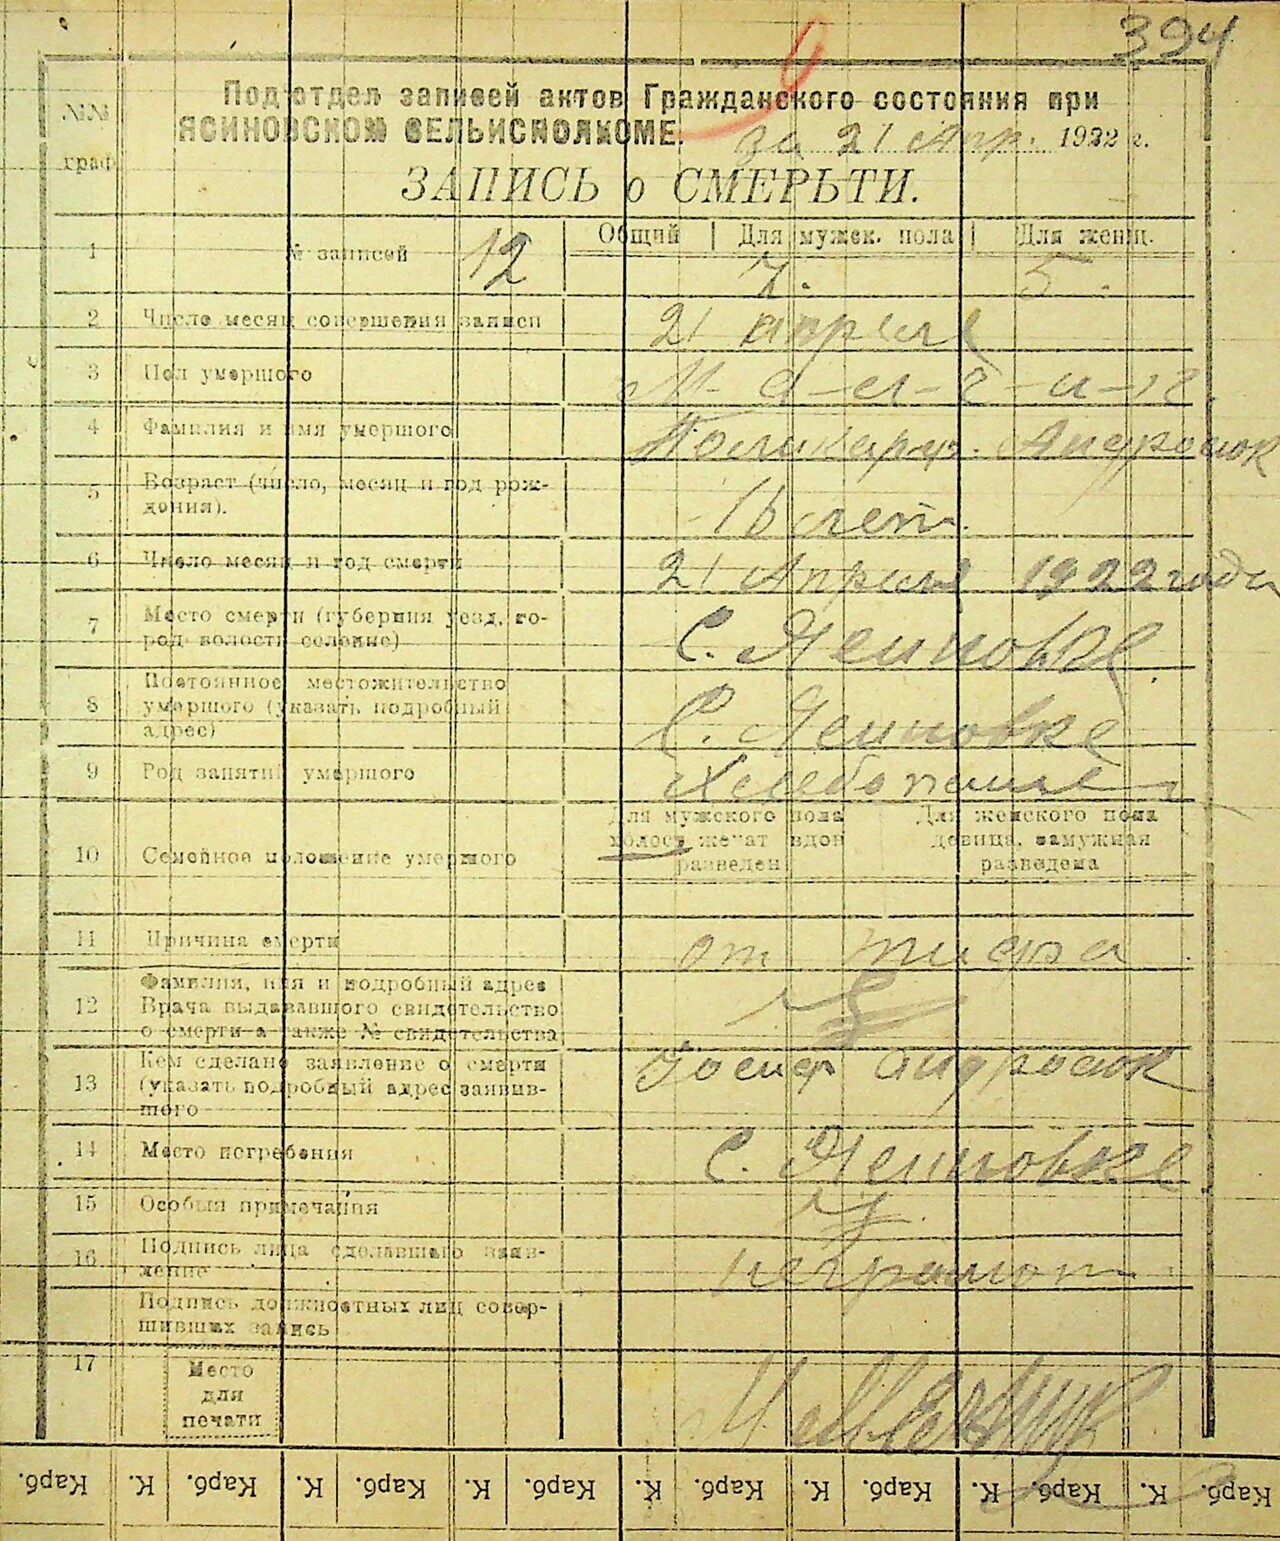 394
Подотдел записей актов Гражданского состояния при
ЯСИНОВСКОМ СЕЛЬИСПОЛКОМЕ.
за 21 Апр. 1922 г.
№№ граф
ЗАПИСЬ о СМЕРЬТИ.
Общий Для мужск. пола Для женщ.
1 № записей 12 7. 5.
2 Число месяц совершения записи 21 апреля
3 Пол умершого
4 Фамилия и имя умершого Поликарп. Андросюк
5 Возраст (число, месяц и год рож-
дения). 16 лет.
6 Число месяц и год смерти 21 Апреля 1922 года
7 Место смерти (губерния уезд, го-
род волость селение) С. Ясиновке
8 Постоянное местожительство
умершого (указать подробный
адрес) С. Ясиновке
9 Род занятий умершого Хлебопаш
Для мужского пола Для женского пола
холост женат вдов девица, замужная
10 Семейное положение умершого
разведен разведена
11 Причина смерти от тифа
Фамилия, имя и подробный адрес
12 Врача выдававшого свидетельство
о смерти а также № свидетельства
Кем сделано заявление о смерти Иосиф Андросюк
13 (указать подробный адрес заявив-
шого
14 Место погребения С. Ясиновке
15 Особыя примечания
Подпись лица сделавшаго заяв-
16 ление неграмот
Подпись должностных лиц совер-
шивших запись
17 Место
для
печати
Карб. К. Карб. К. Карб. К. Карб. К. Карб. К. Карб. К. Карб. К. Карб.